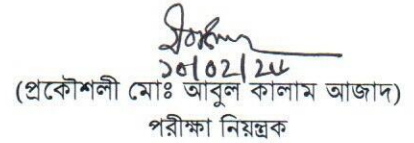 (প্রকৌশলী মোঃ আবুল কালাম আজাদ)
পরীক্ষা নিয়ন্ত্রক